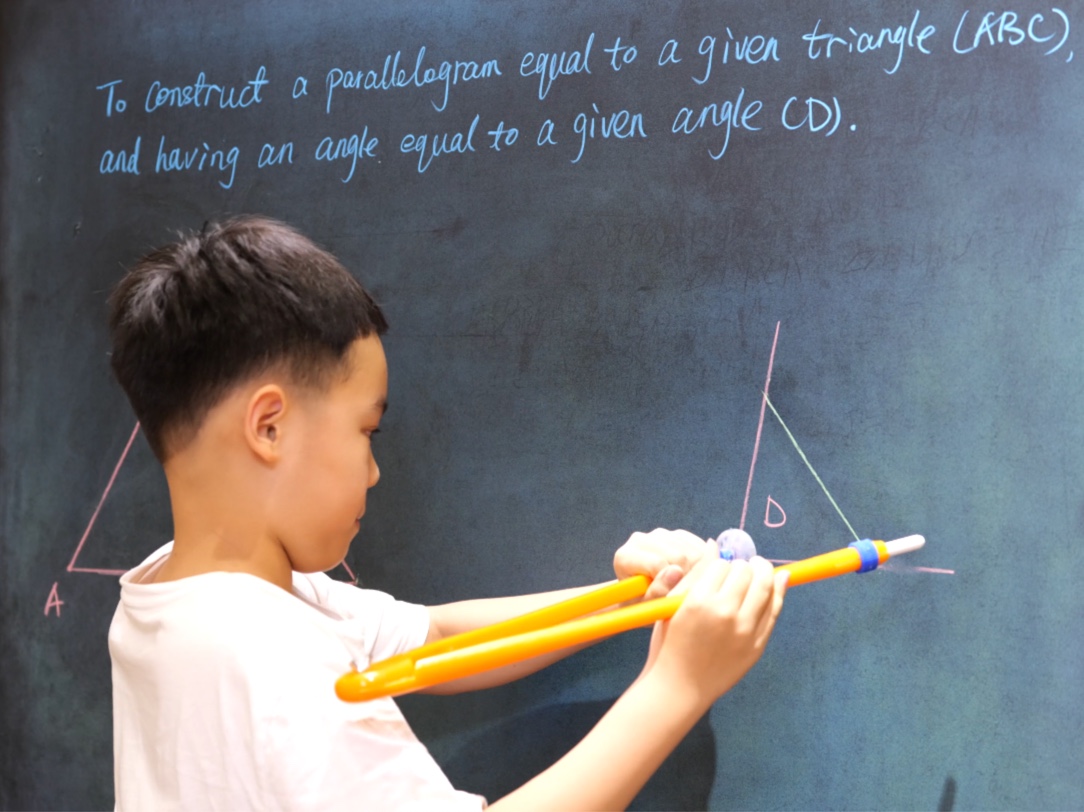 To construct a parallelogram equal to a given triangle (ABC),
and having an angle equal to a given angle (D).
D
A